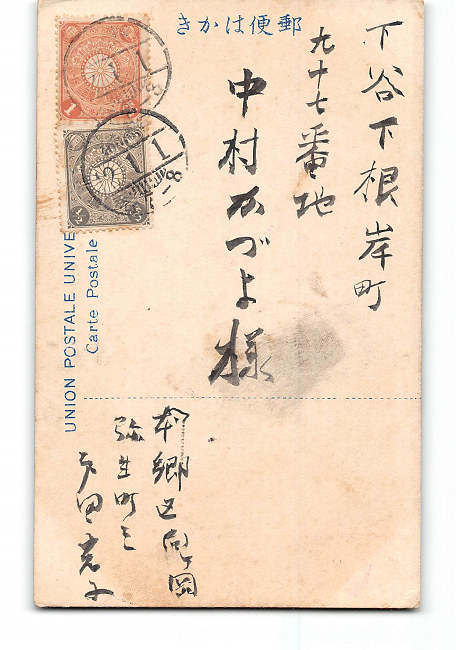 きかは便郵
下谷下根岸町
九十七番地
中村かづよ様
本郷区向ヶ岡
弥生町三
UNION POSTALE UNIVE
Carte Postale
1